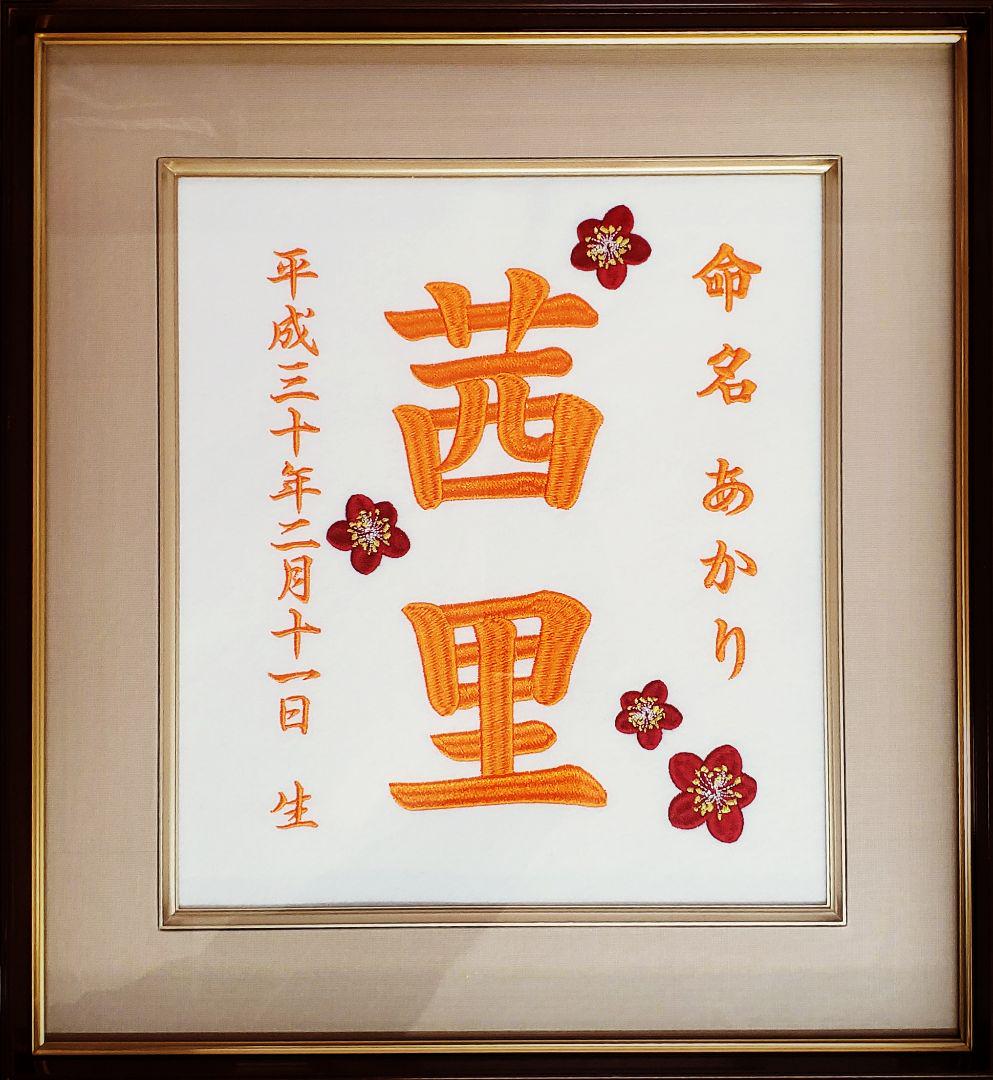 命名 あかり
茜里
平成三十年二月十一日 生